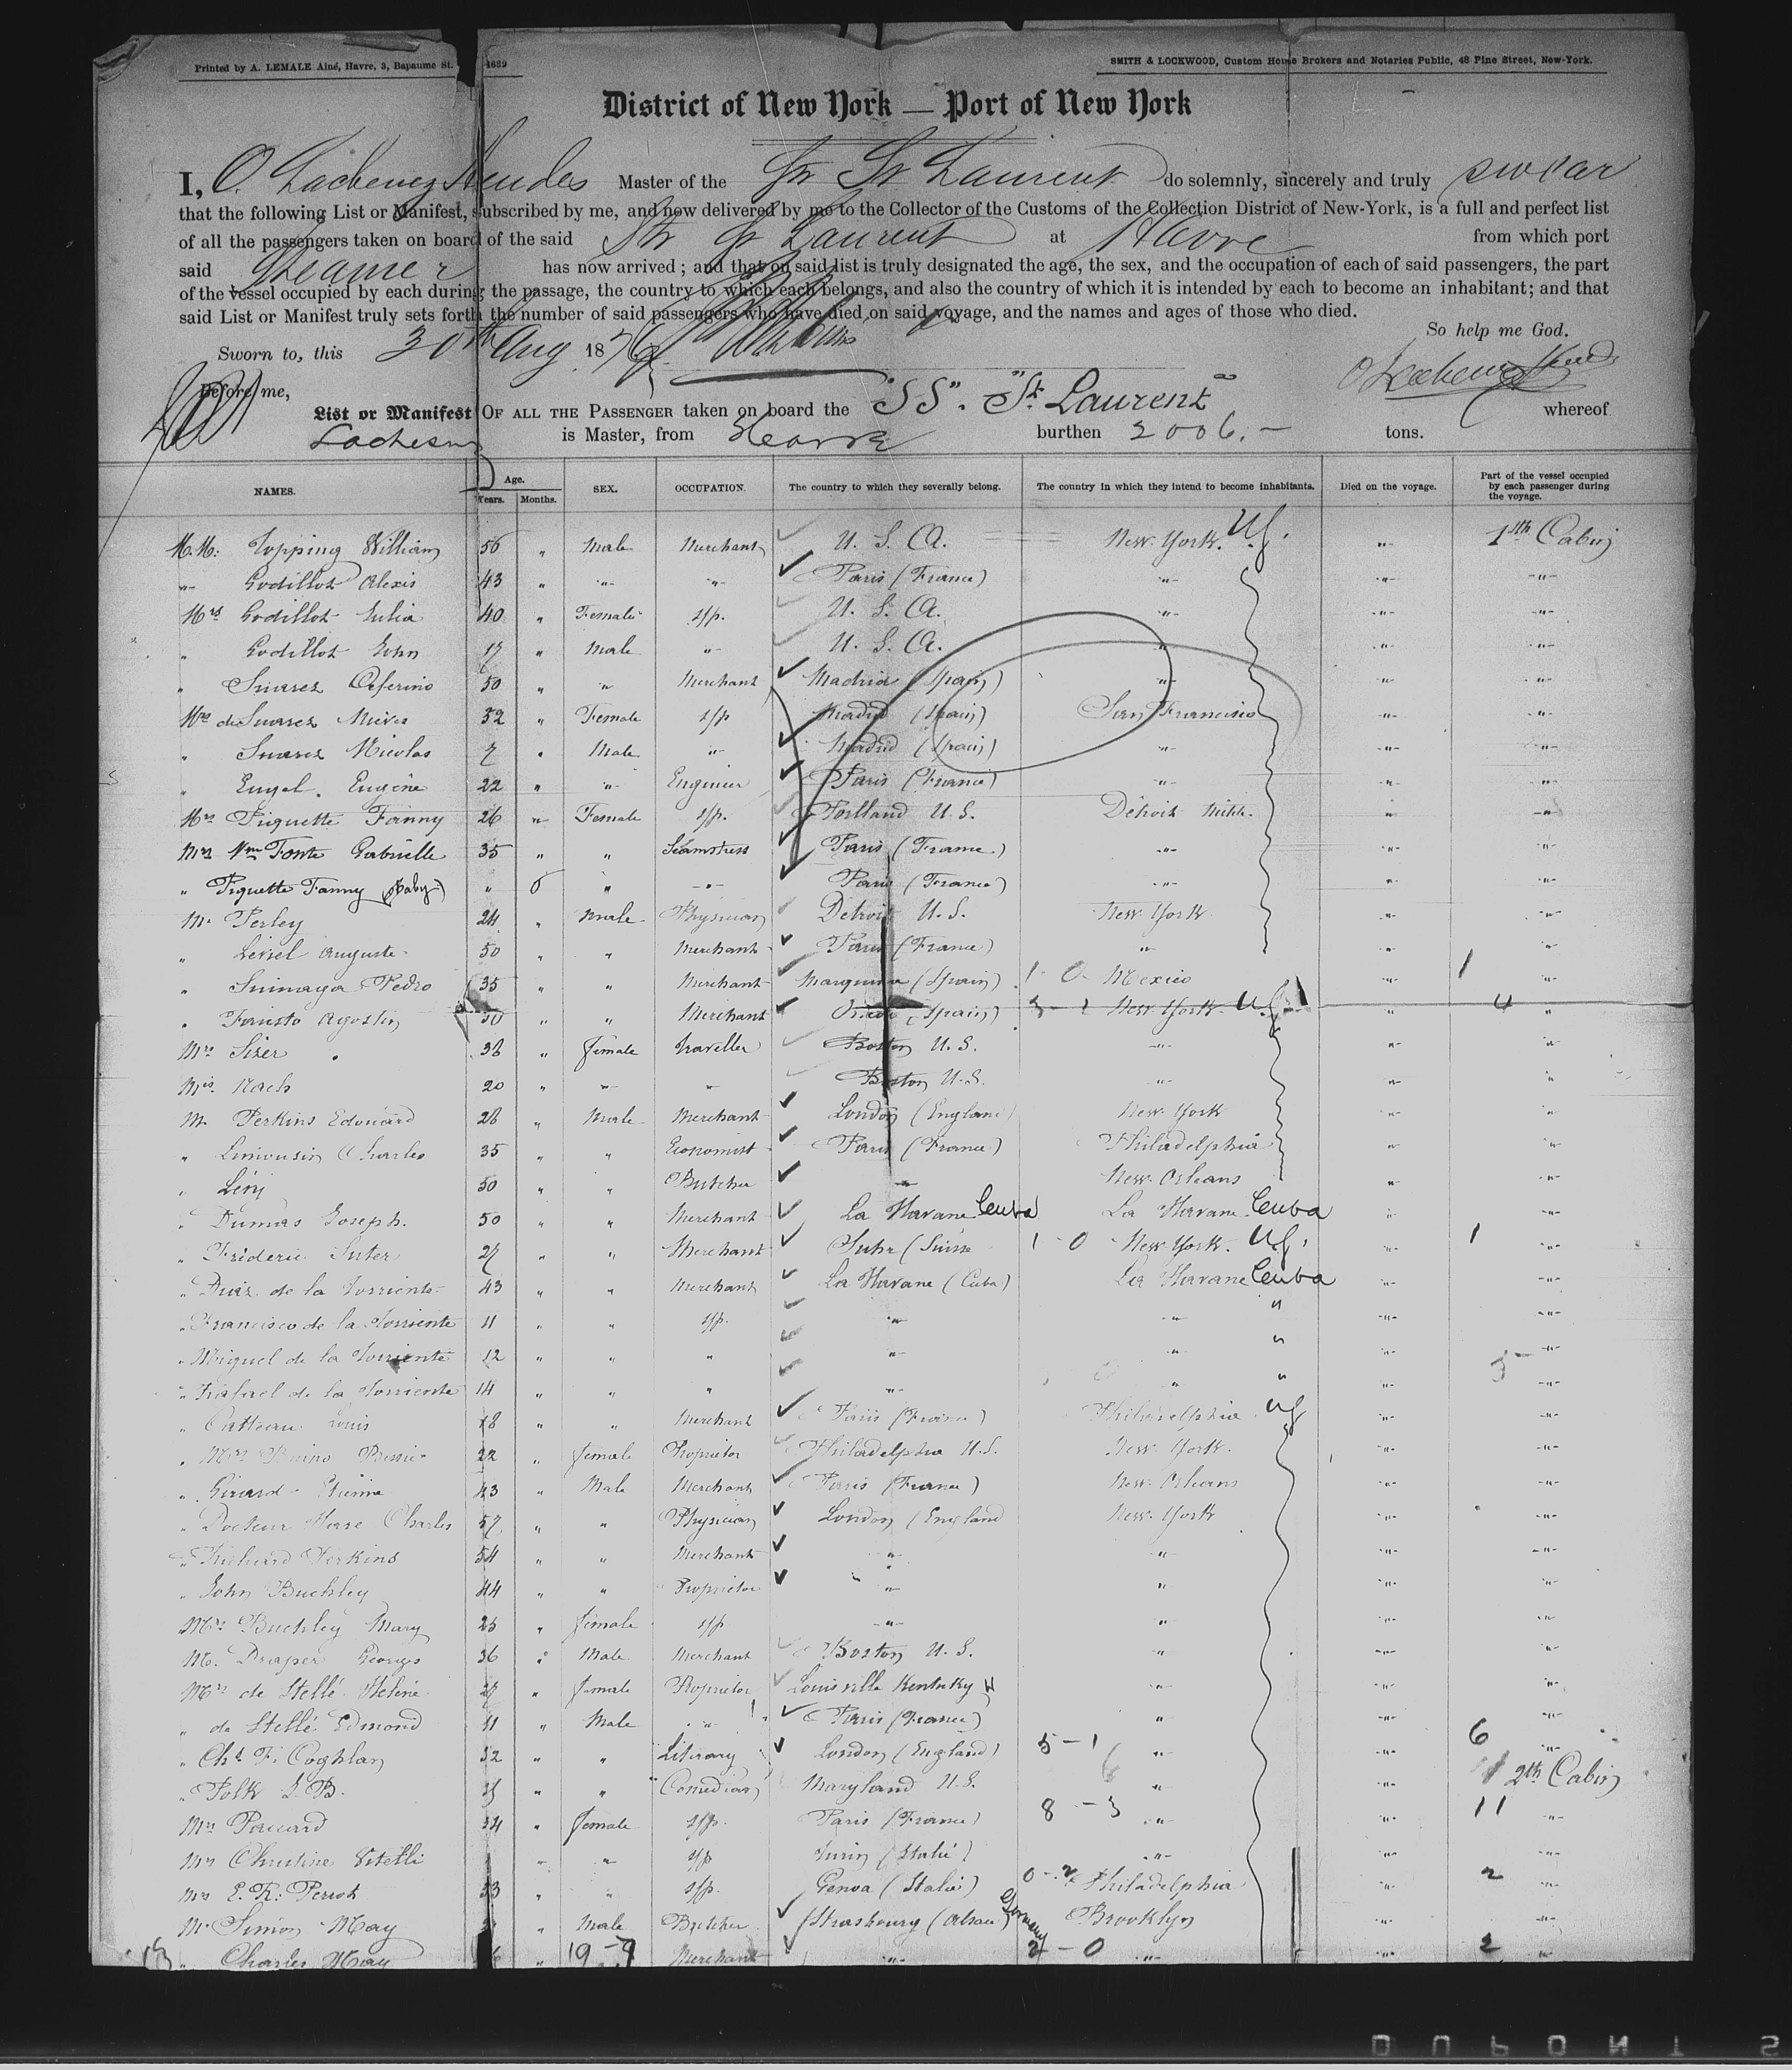 Printed by A. LEMALE Aîné, Havre, 3, Bapaume St. 4639
SMITH & LOCKWOOD, Custom House Brokers and Notaries Public, 48 Pine Street, New-York.
District of New York — Port of New York
I, O. Lachenez Heudes Master of the Str St Laurent do solemnly, sincerely and truly swear
that the following List or Manifest, subscribed by me, and now delivered by me to the Collector of the Customs of the Collection District of New-York, is a full and perfect list
of all the passengers taken on board of the said Str St Laurent at Havre from which port
said Steamer has now arrived; and that on said list is truly designated the age, the sex, and the occupation of each of said passengers, the part
of the vessel occupied by each during the passage, the country to which each belongs, and also the country of which it is intended by each to become an inhabitant; and that
said List or Manifest truly sets forth the number of said passengers who have died on said voyage, and the names and ages of those who died.
So help me God.
Sworn to, this 30th Aug. 1876
Before me,
List or Manifest OF ALL THE PASSENGER taken on board the "SS". "St. Laurent" whereof
Lachesnez is Master, from Havre burthen 2006.- tons.
NAMES. Age. Years. Months. SEX. OCCUPATION. The country to which they severally belong. The country in which they intend to become inhabitants. Died on the voyage. Part of the vessel occupied by each passenger during the voyage.
M.M: Topping William 56 " Male Merchant U. S. A. New-York. -"- 1sth Cabin
-"- Godillot Alexis 43 " -"- -"- Paris (France) -"- -"- -"-
Mrs Godillot Julia 40 " Female s/p. U. S. A. -"- -"- -"-
" Godillot John 17 " Male -"- U. S. A. " -"- -"-
" Suarez Ceferino 50 " -"- Merchant Madrid (Spain) -"- -"- -"-
Mrs de Suarez Nieves 32 " Female s/p Madrid (Spain) San Francisco -"- -"-
" Suarez Nicolas 7 " Male -"- Madrid (Spain) -"- -"- -"-
" Engel. Eugène 22 " -"- Engineer Paris (France) -"- -"- -"-
Mrs Piquette Fanny 26 -"- Female s/p. Portland U. S. Détroit Mich. -"- -"-
Mrs Fonte Gabrielle 35 " " Seamstress Paris (France) -"- -"- -"-
" Piquette Fanny (Baby) " 6 " -"- Paris (France) -"- -"- -"-
Mr Perley 24 " Male Physician Detroit U. S. New York -"- -"-
" Auguste 50 " " Merchant Paris (France) -"- -"- -"-
" Pedro 35 " " Merchant (Spain) 1 - 0 Mexico -"- 1 -"-
" Agostin 50 " " Merchant (Spain) 3 - 1 New York " 4 "
Mrs Sizer 38 " female traveller Boston U. S. -"- -"- -"-
Mis. Nach 20 " -"- -"- Boston U. S. -"- -"- "
M. Perkins Edouard 28 " Male Merchant London (England) New York -"- "
" Limousin Charles 35 " " Economist Paris (France) Philadelphia -"- -"-
" Levy 50 " " Butcher -"- New Orleans -"- -"-
" Dumas Joseph. 50 " " Merchant La Havane Cuba La Havane Cuba -"- -"-
" Fréderic Suter 27 " " Merchant Suhr (Suisse 1 - 0 New York. -"- 1 -"-
" Diaz de la Torriente 43 " " Merchant La Havane (Cuba) La Havane Cuba -"- -"-
" Francisco de la Torriente 11 " " s/p. -"- -"- " -"- -"-
" Miguel de la Torriente 12 " " " -"- -"- " -"- -"-
" Rafael de la Torriente 14 " " " -"- -"- " -"- 5 -"-
" Catteau Louis 18 " " Merchant Paris (France) Philadelphia -"- -"-
" Mrs Bessie 22 " female Proprietor Philadelphia U.S. New York. -"- -"-
" Girard Etienne 43 " Male Merchant Paris (France) New Orleans -"- -"-
" Docteur Charles 57 " " Physician London (England New York -"- -"-
" Richard Perkins 54 " " Merchant -"- -"- -"- -"-
" John Buckley 44 " " Proprietor -"- " -"- -"-
Mrs Buckley Mary 25 " female s/p -"- " -"- -"-
M. Draper Georges 36 " Male Merchant Boston U. S. " -"- -"-
Mrs de Stellé Helène 27 " female Proprietor Louisville Kentuky -"- -"- -"-
" de Stellé Edmond 41 " Male -"- Paris (France) " -"- -"-
" Chs F. Coghlan 32 " " Literary London (England) 5 - 1 -"- -"- 6 -"-
" Polk J. B. " " Comedian Maryland U. S. " -"- 2th Cabin
Mrs 34 " female s/p. Paris (France) 8 - 3 -"- -"- 11 -"-
Mrs Christine Vitelli -"- s/p Turin (Italie) -"- -"- -"-
Mrs E. R: Perrot 33 " " s/p. Genoa (Italie) 0 - 2 Philadelphia -"- 2 -"-
Mr Simon May " Male Butcher Strasbourg (Alsace) Germany Brooklyn -"- -"-
" Charles May 6 " 19 - 9 Merchant -"- 2 - 0 -"- -"- 2 "
DUPONT S